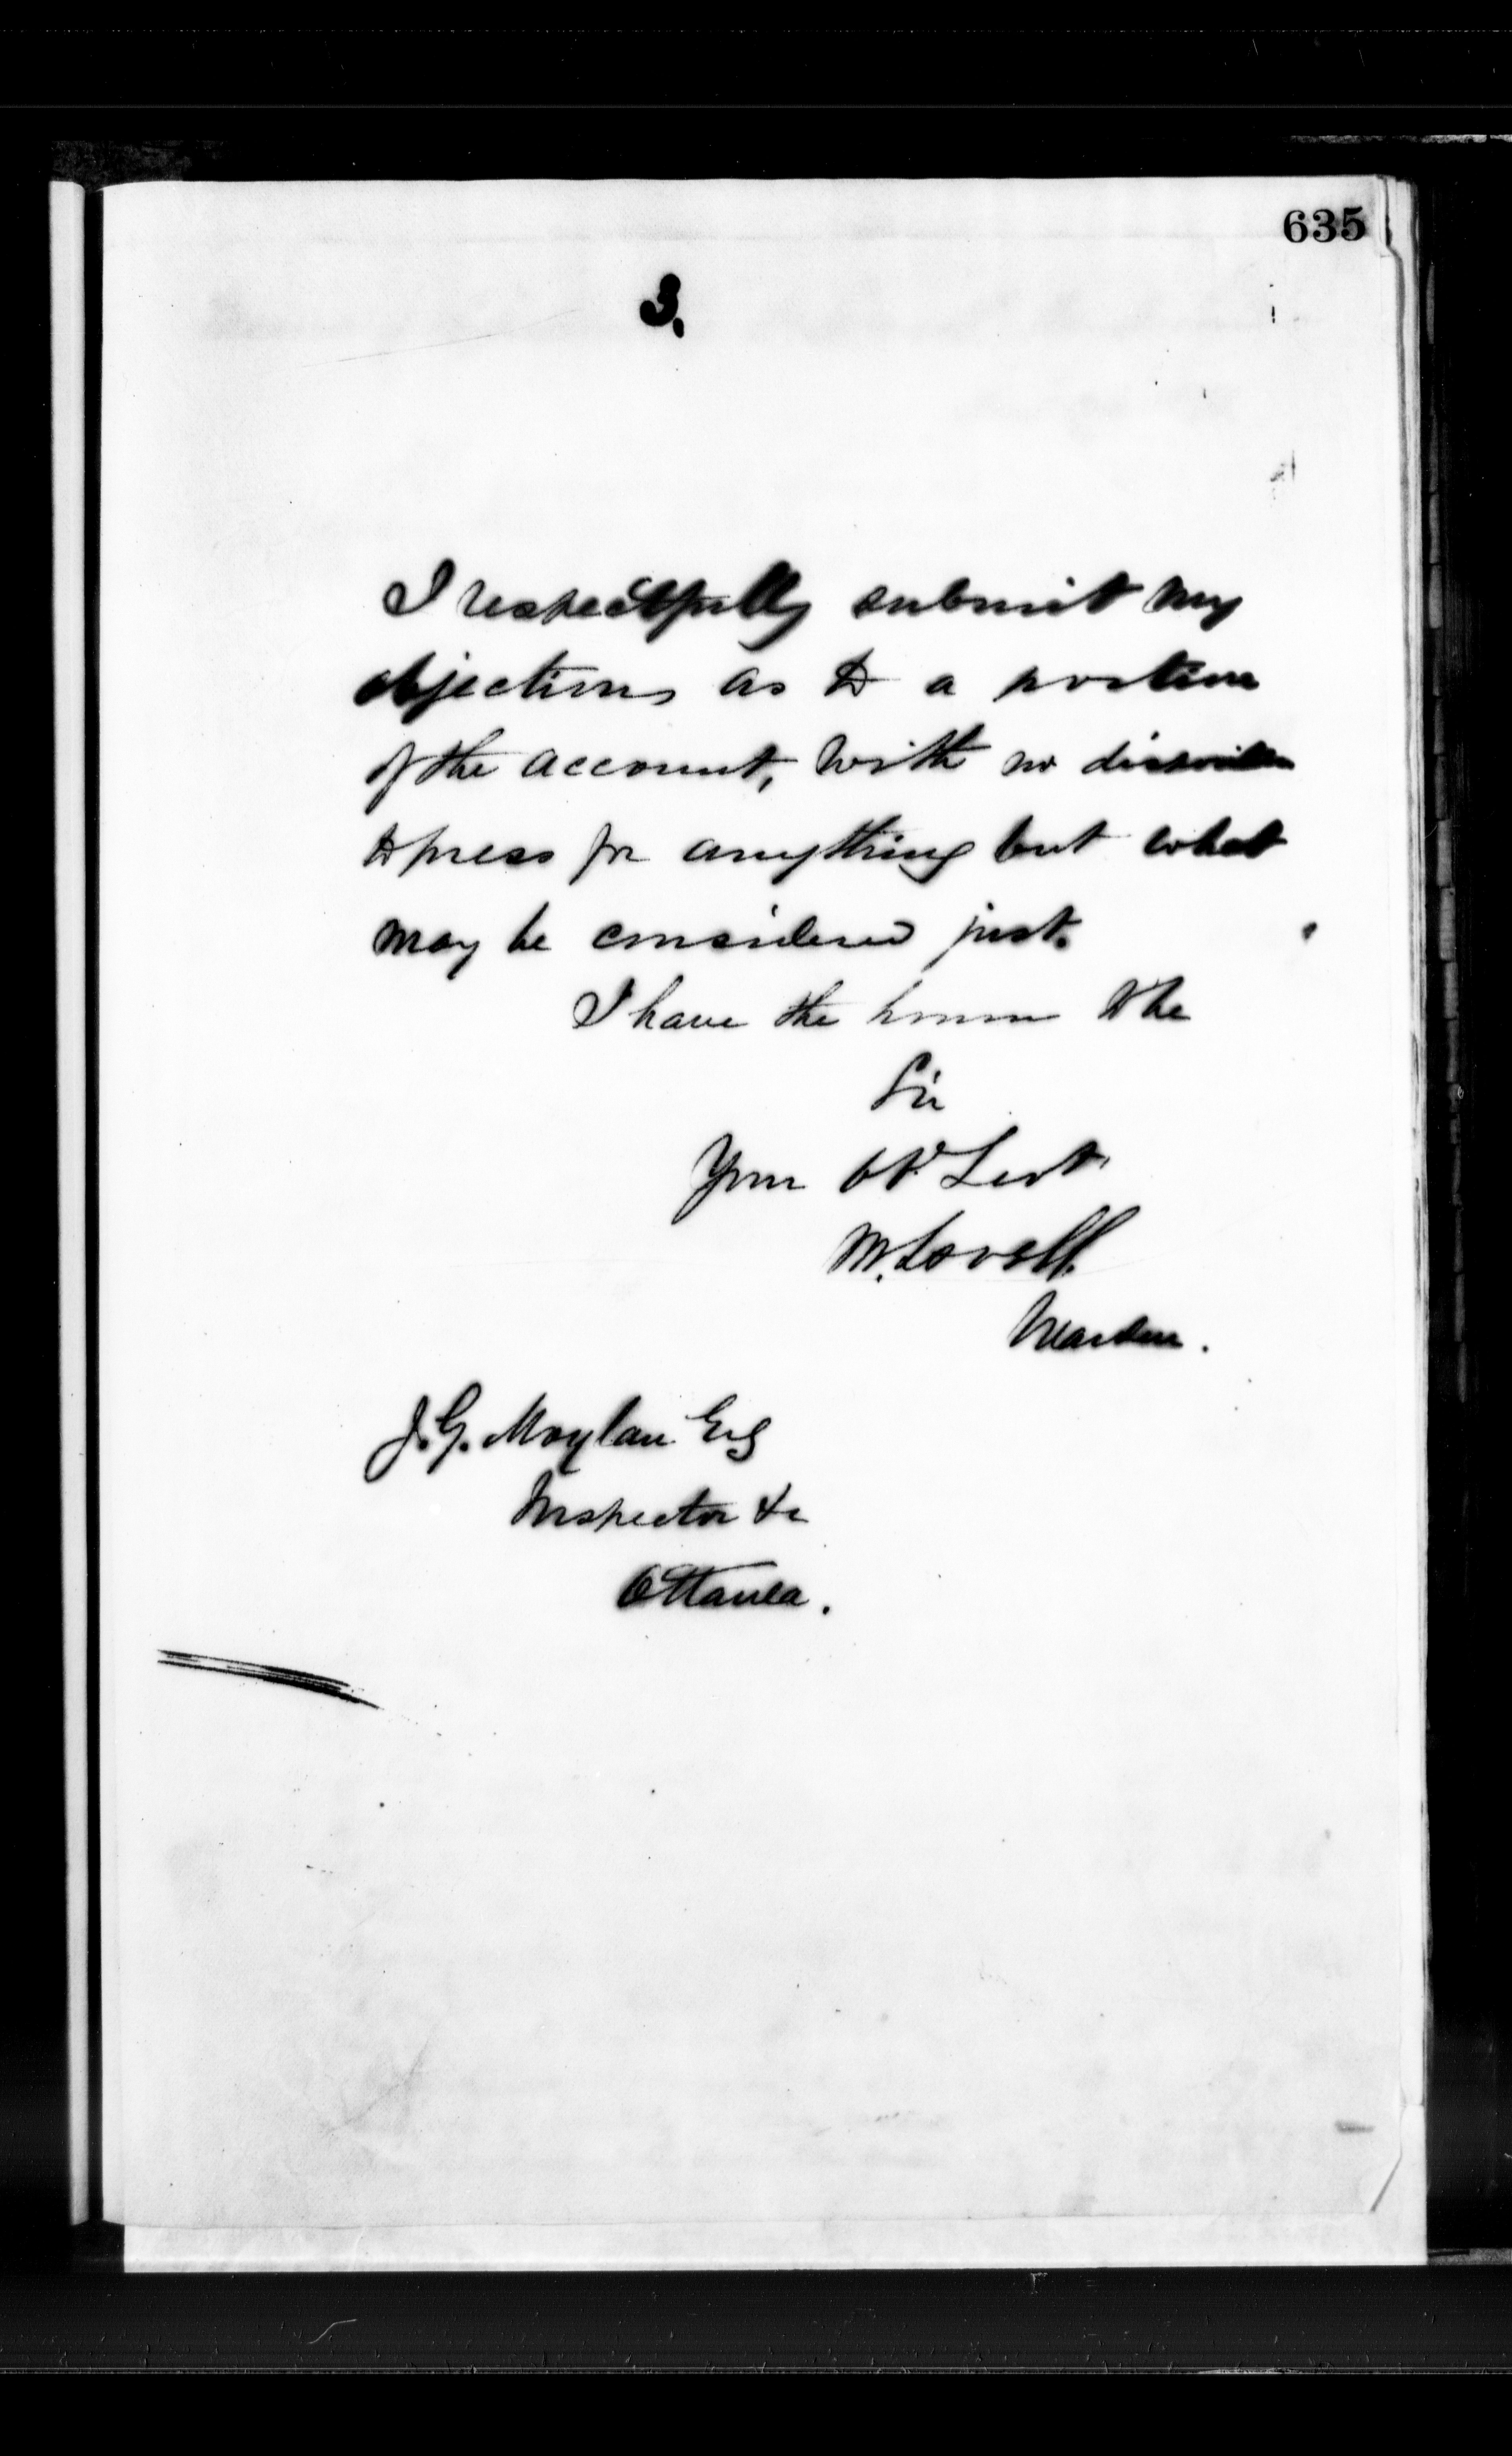 635
3.
I respectfully submit my
objections as to a portion
of the account, with no disposition
to press for anything but what
may be considered just.
I have the honor to be
Sir
Your Ob. Sevt
M. Lavell.
Warden.
J. G. Moylan Esq
Inspector &c
Ottawa.